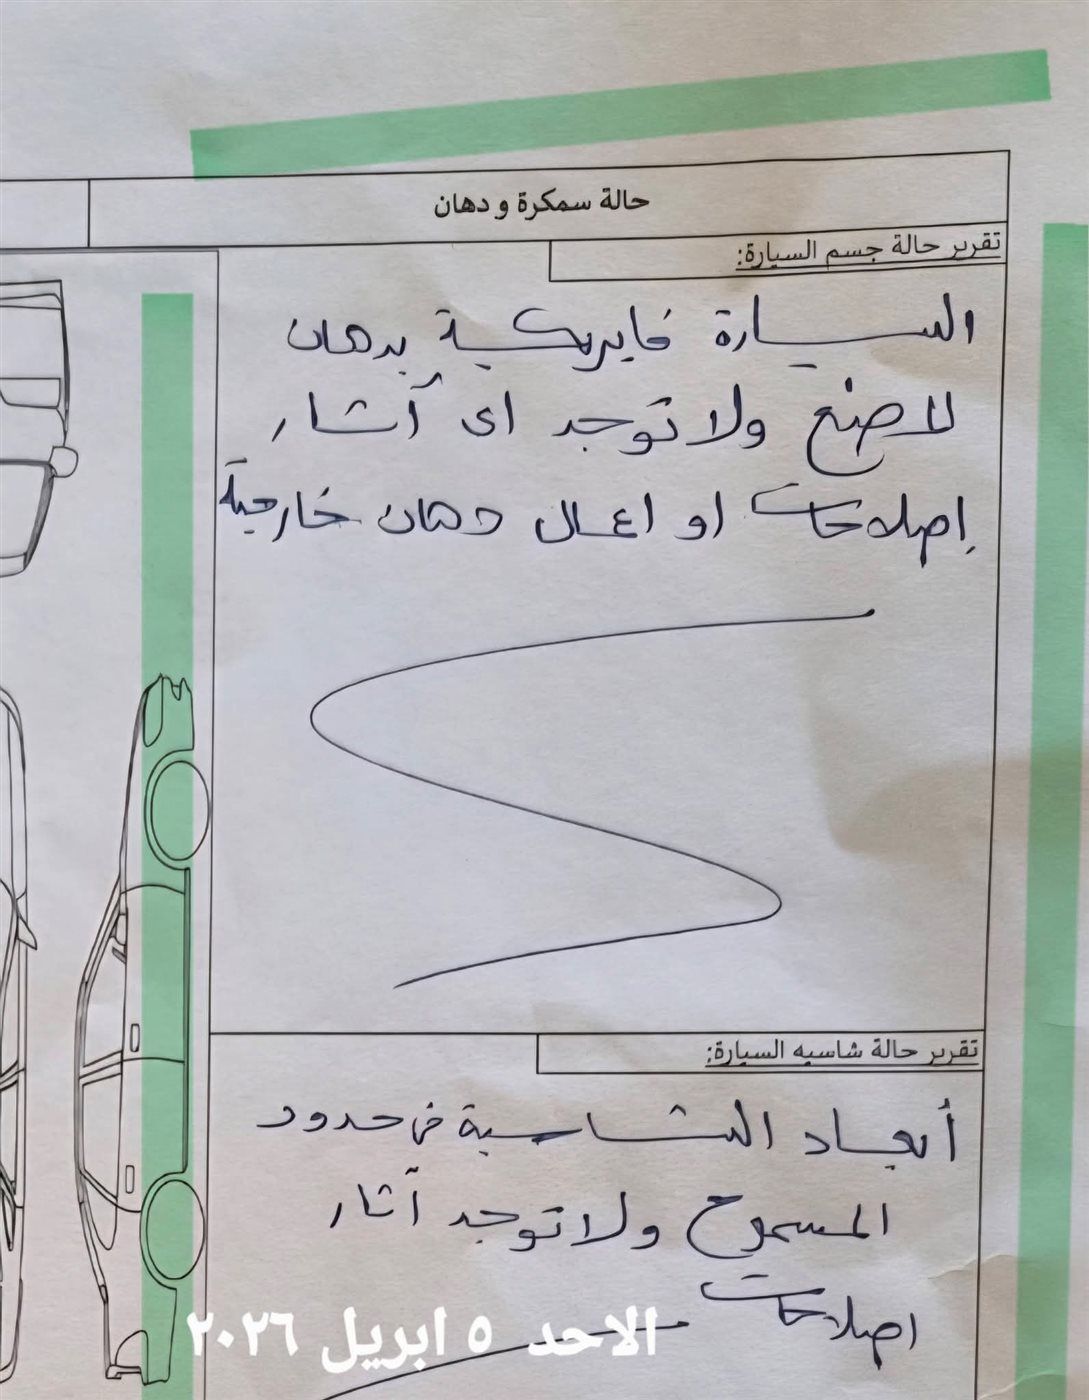 حالة سمكرة و دهان
تقرير حالة جسم السيارة:
السيارة فابريكية بدهان
المصنع ولا توجد اى آثار
إصلاحات او اعمال دهان خارجية
تقرير حالة شاسيه السيارة:
أبعاد الشاسية فى حدود
المسموح ولا توجد آثار
اصلاحات
الاحد ٥ ابريل ٢٠٢٦